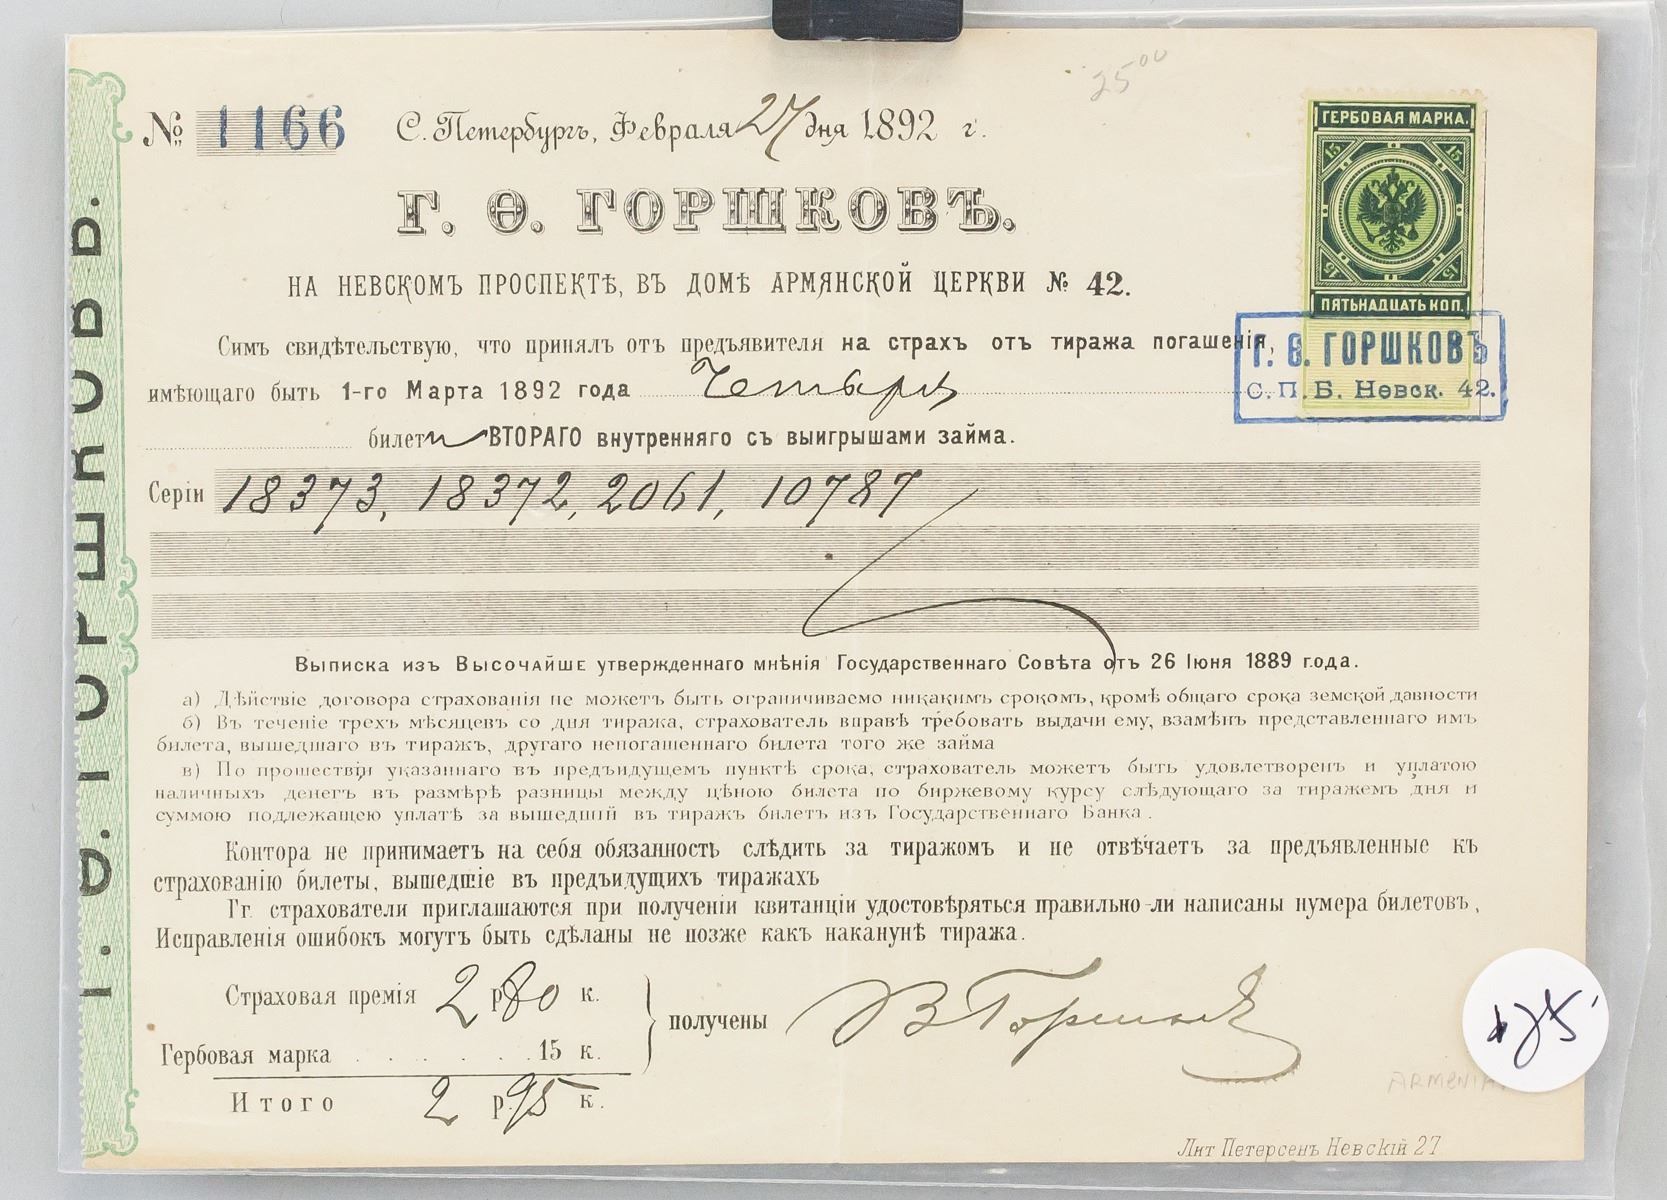 25 00
№ 1166 С. Петербургъ, Февраля 27 дня 1892 г.
ГЕРБОВАЯ МАРКА.
15 15
15 15
ПЯТЬНАДЦАТЬ КОП.
Г. Ѳ. ГОРШКОВЪ.
НА НЕВСКОМЪ ПРОСПЕКТѢ, ВЪ ДОМѢ АРМЯНСКОЙ ЦЕРКВИ № 42.
Симъ свидѣтельствую, что принялъ отъ предъявителя на страхъ отъ тиража погашенія,
Г. Ѳ. ГОРШКОВЪ
С. П. Б. Невск. 42.
имѣющаго быть 1-го Марта 1892 года Четыре
билета ВТОРАГО внутренняго съ выигрышами займа.
Серіи 18373, 18372, 2061, 10787
Выписка изъ Высочайше утвержденнаго мнѣнія Государственнаго Совѣта отъ 26 Іюня 1889 года.
а) Дѣйствіе договора страхованія не можетъ быть ограничиваемо никакимъ срокомъ, кромѣ общаго срока земской давности
б) Въ теченіе трехъ мѣсяцевъ со дня тиража, страхователь вправѣ требовать выдачи ему, взамѣнъ представленнаго имъ
билета, вышедшаго въ тиражъ, другаго непогашеннаго билета того же займа
в) По прошествіи указаннаго въ предъидущемъ пунктѣ срока, страхователь можетъ быть удовлетворенъ и уплатою
наличныхъ денегъ въ размѣрѣ разницы между цѣною билета по биржевому курсу слѣдующаго за тиражемъ дня и
суммою подлежащею уплатѣ за вышедшій въ тиражъ билетъ изъ Государственнаго Банка.
Контора не принимаетъ на себя обязанность слѣдить за тиражомъ и не отвѣчаетъ за предъявленные къ
страхованію билеты, вышедшіе въ предъидущихъ тиражахъ
Гг. страхователи приглашаются при полученіи квитанціи удостовѣряться правильно-ли написаны нумера билетовъ,
Исправленія ошибокъ могутъ быть сдѣланы не позже какъ наканунѣ тиража.
Страховая премія 2 р 80 к.
получены В Горшковъ
Гербовая марка . . . . . . . 15 к.
Итого 2 р. 95 к.
ARMENIA
Лит Петерсенъ Невскій 27
Г. Ѳ. ГОРШКОВЪ.